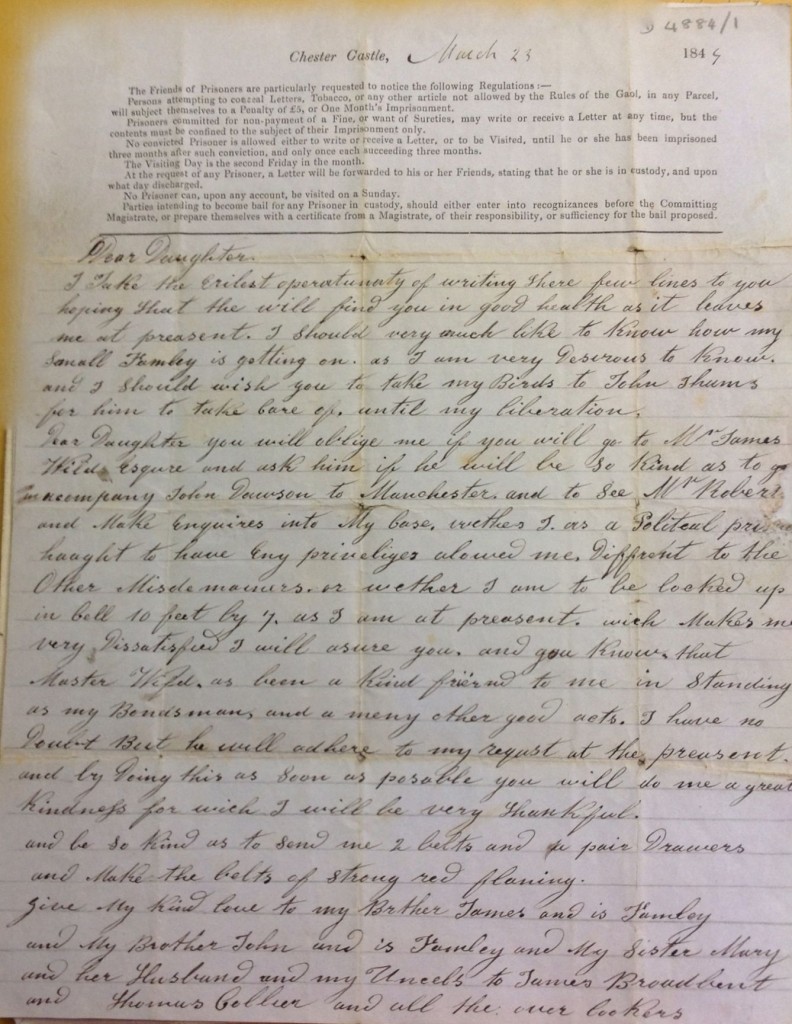 D 4884/1
Chester Castle, March 23 184
The Friends of Prisoners are particularly requested to notice the following Regulations:—
Persons attempting to conceal Letters, Tobacco, or any other article not allowed by the Rules of the Gaol, in any Parcel,
will subject themselves to a Penalty of £5, or One Month's Imprisonment.
Prisoners committed for non-payment of a Fine, or want of Sureties, may write or receive a Letter at any time, but the
contents must be confined to the subject of their Imprisonment only.
No convicted Prisoner is allowed either to write or receive a Letter, or to be Visited, until he or she has been imprisoned
three months after such conviction, and only once each succeeding three months.
The Visiting Day is the second Friday in the month.
At the request of any Prisoner, a Letter will be forwarded to his or her Friends, stating that he or she is in custody, and upon
what day discharged.
No Prisoner can, upon any account, be visited on a Sunday.
Parties intending to become bail for any Prisoner in custody, should either enter into recognizances before the Committing
Magistrate, or prepare themselves with a certificate from a Magistrate, of their responsibility, or sufficiency for the bail proposed.
Dear Daughter.
I Take the Erilest operatunaty of writing these few lines to you
hoping that the will find you in good health as it leaves
me at preasent. I should very much like to Know how my
Small Famley is getting on. as I am very Desirous to Know.
and I should wish you to take my Birds to John Shaws
for him to take Care of. until my liberation.
Dear Daughter you will oblige me if you will go to Mr James
Wild Esqure and ask him if he will be So Kind as to go
acompany John Dawson to Manchester. and to See Mr Robert
and Make Enquires into My Case. wether I. as a Politcal
haught to have Eny priveliges alowed me. Diffrent to the
Other Misdemanurs. or wether I am to be locked up
in Cell 10 feet by 7. as I am at preasent. wich Makes me
very Dissatisfied I will asure you. and you Know. that
Master Wild. as been a Kind friend to me in Standing
as my Bondsman, and a meny other good acts. I have no
Doubt But he will adhere to my reqast at the preasent.
and by Doing this as Soon as posable you will do me a great
Kindness for wich I will be very thankful.
and be so Kind as to Send me 2 belts and a pair Drawers
and Make the belts of Strong red flaning.
Give My Kind love to my Brther James and is Famley
and My Brother John and is Famley and My Sister Mary
and her Husband and my Uncels to James Broadbent
and Thomas Collier and all the over lookers